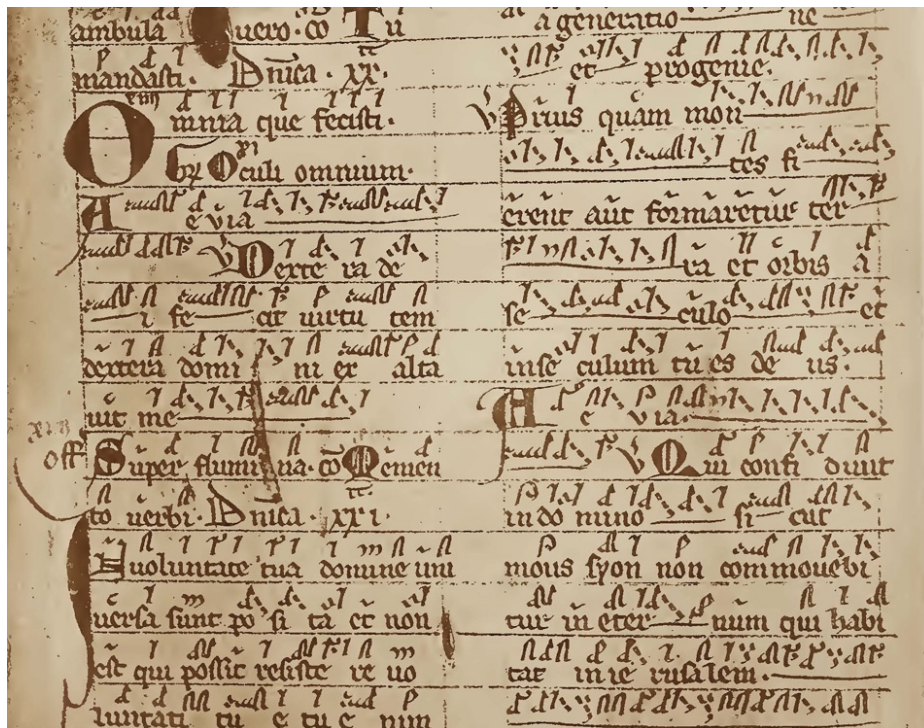 ambula uero. co Tu
mandasti. Dnica. xx.
Omnia que fecisti.
Gr Oculi omnium.
A e via
V Dexte ra de
i fe cit uirtu tem
dextera domi ni ex alta
uit me
off Super flumi na. co Memen
to uerbi. Dnica. xxi.
In uoluntate tua domine uni
uersa sunt po si ta et non
est qui possit resiste re uo
luntati tu e tu e nim
a generatio ne
et progenie.
V Prius quam mon
tes fi
erent aut formaretur ter
ra et orbis a
se culo et
inse culum tu es de us.
A e via.
V Qui confi dunt
indo mino si cut
mons syon non commouebi
tur in eter num qui habi
tat in ie rusalem.